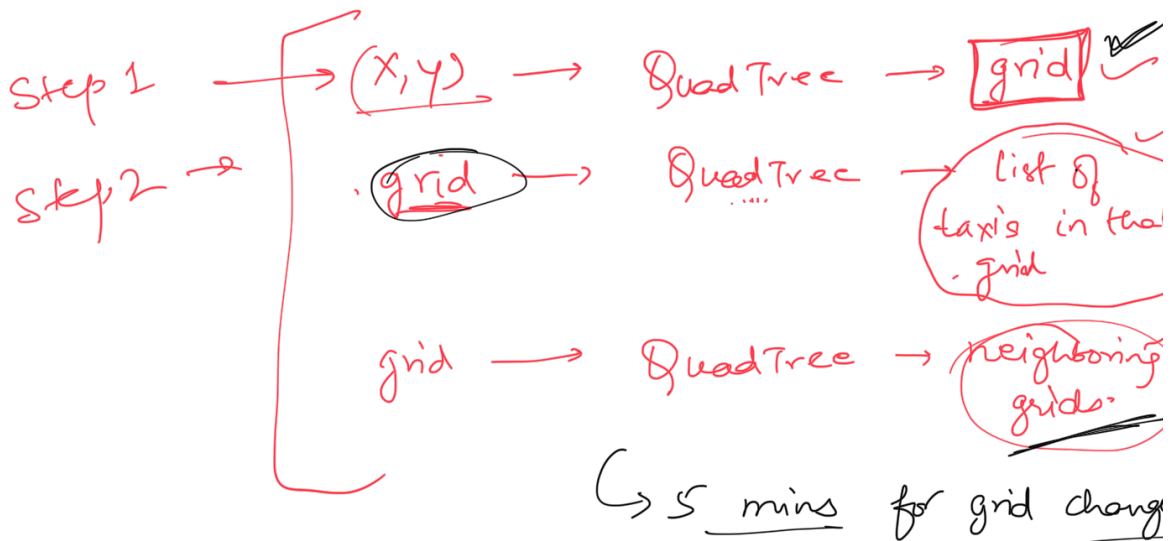 Step 1 → (x,y) → QuadTree → grid ✓
Step 2 → grid → QuadTree → list of
taxis in that
grid
grid → QuadTree → neighboring
grids.
↳ 5 mins for grid change